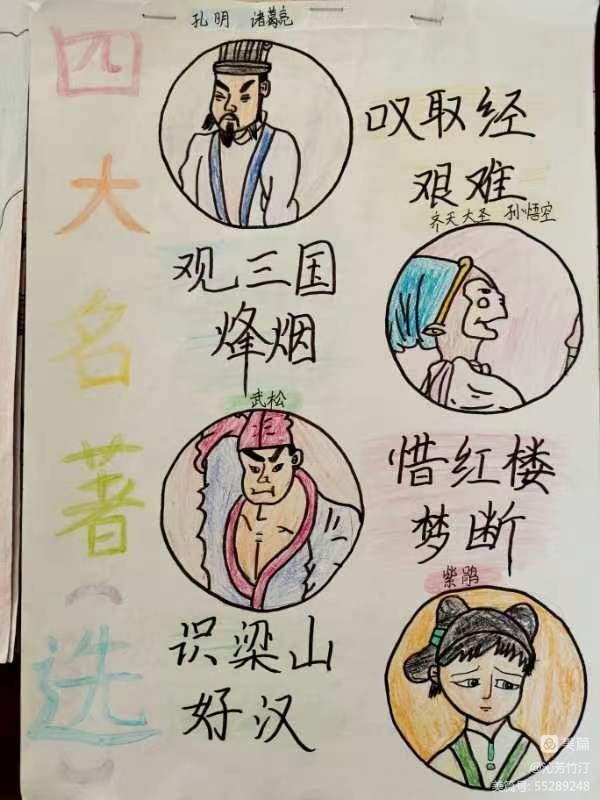 四大名著（选）
孔明 诸葛亮
叹取经
艰难
齐天大圣 孙悟空
观三国
烽烟
武松
惜红楼
梦断
紫鹃
识梁山
好汉
美篇
@沁芳竹汀
美篇号: 55289248